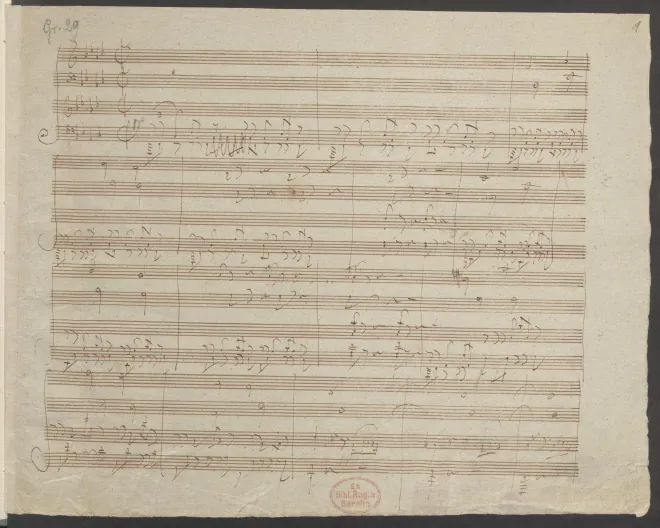 Gr. 29
1
Ex
Bibl. Regia
Berolin.